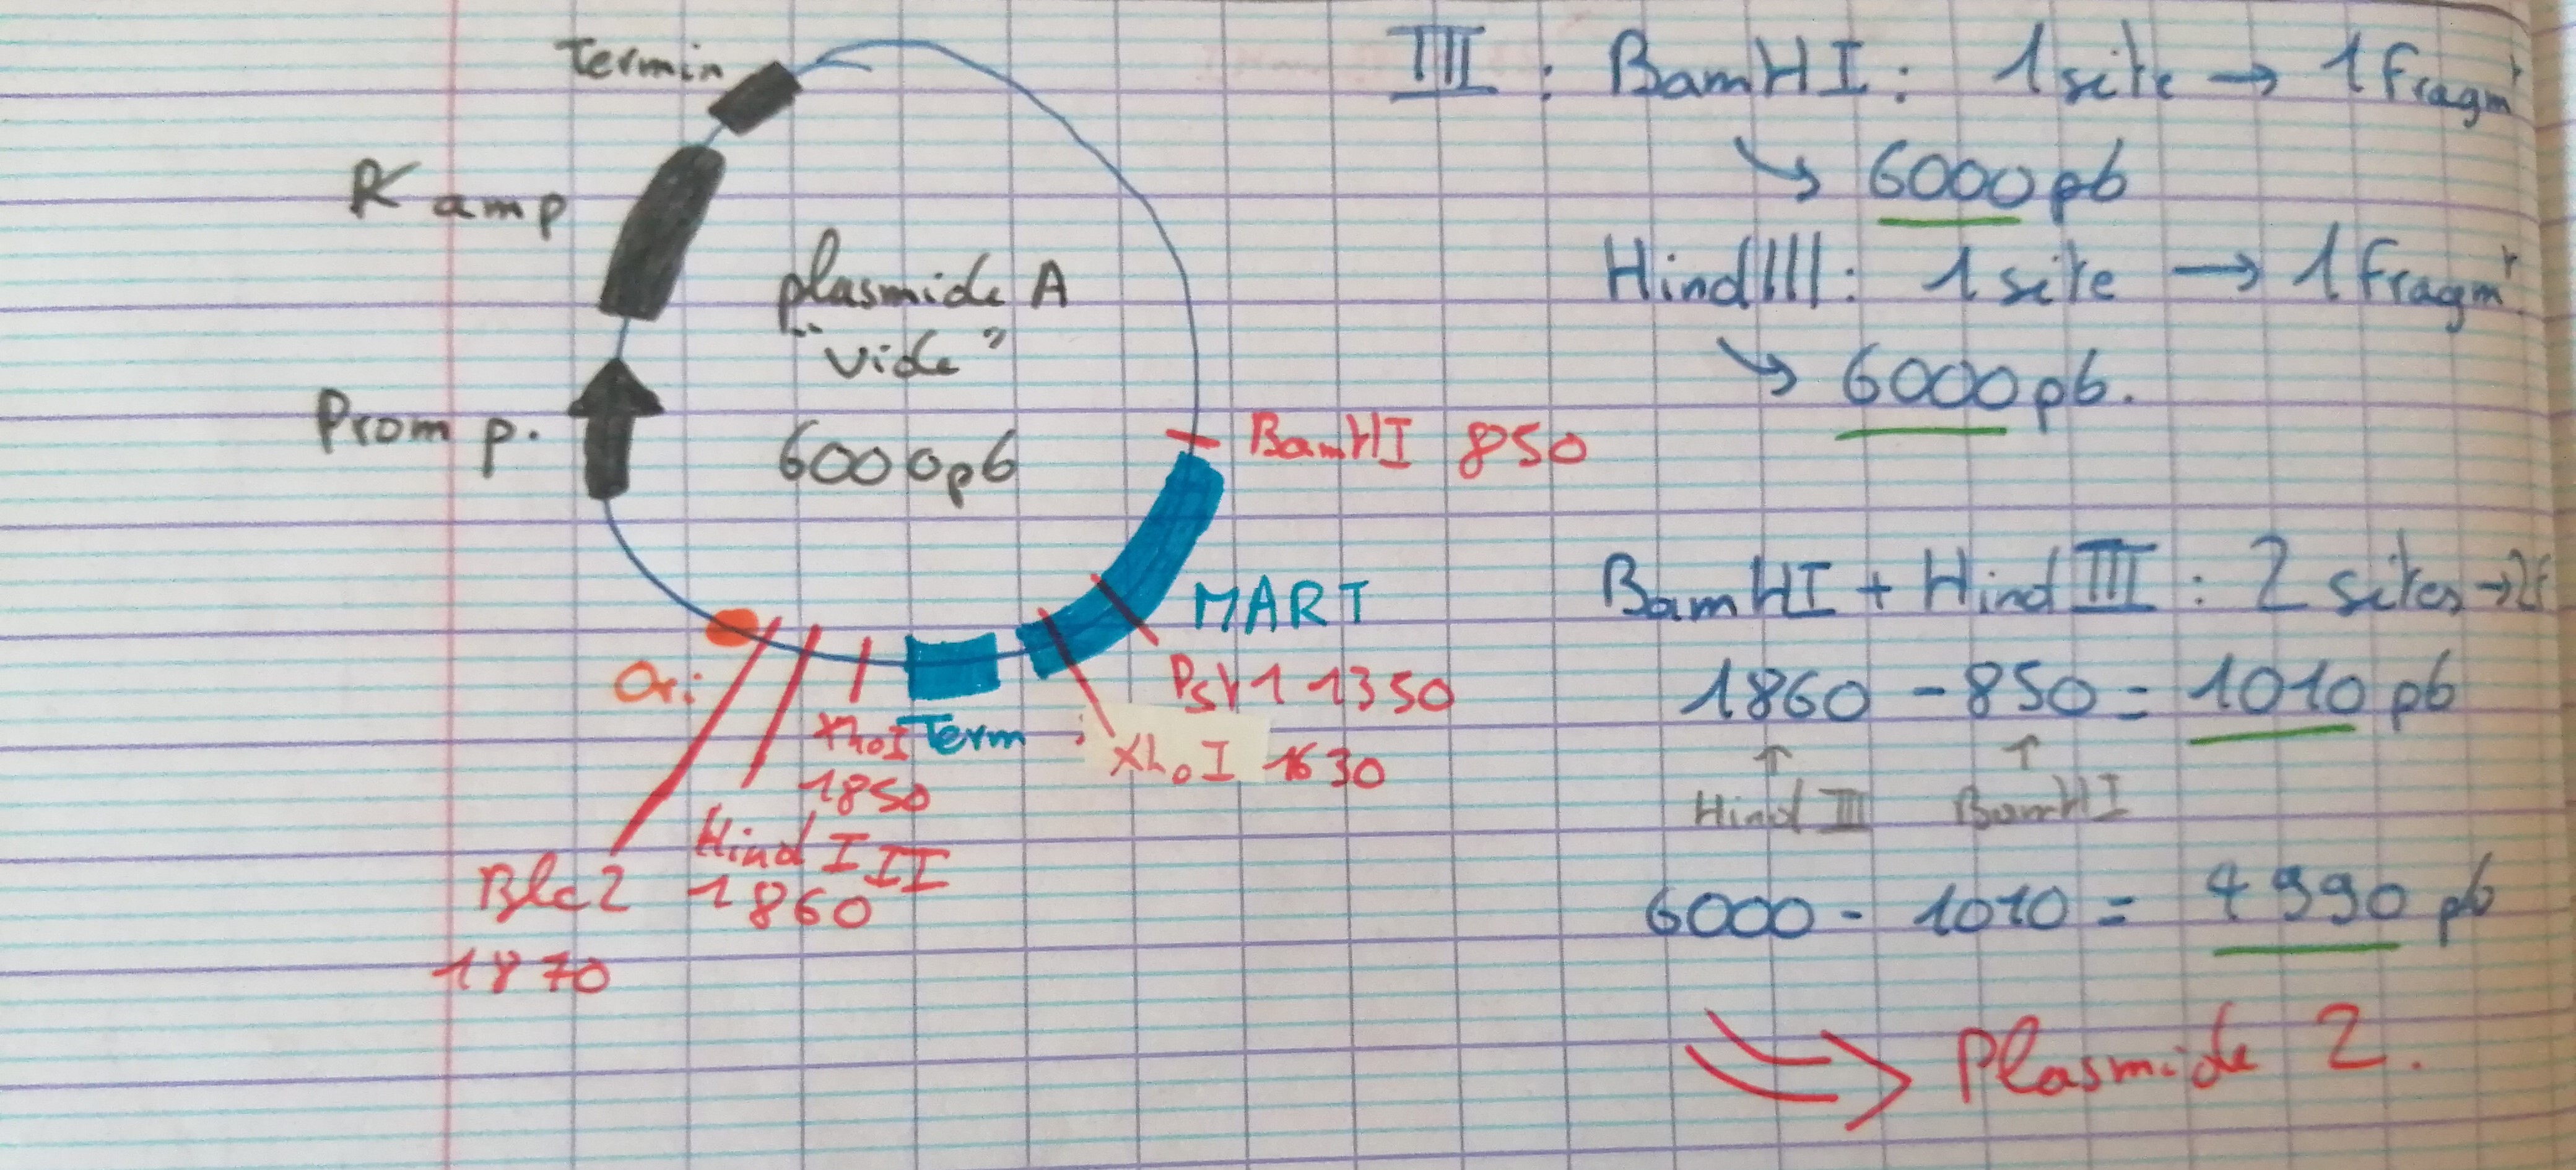 Termin
R amp
plasmide A
"vide"
6000pb
Prom p.
BamHI 850
MART
Pst1 1350
XhoI 1630
Term
XhoI
1850
Ori
Hind III
1860
Blc2
1870
III : BamHI : 1 site → 1 Fragmt
↘ 6000 pb
HindIII : 1 site → 1 Fragmt
↘ 6000 pb.
BamHI + Hind III : 2 sites → 2f
1860 - 850 = 1010 pb
↑ ↑
Hind III BamHI
6000 - 1010 = 4990 pb
⇒ Plasmide 2.